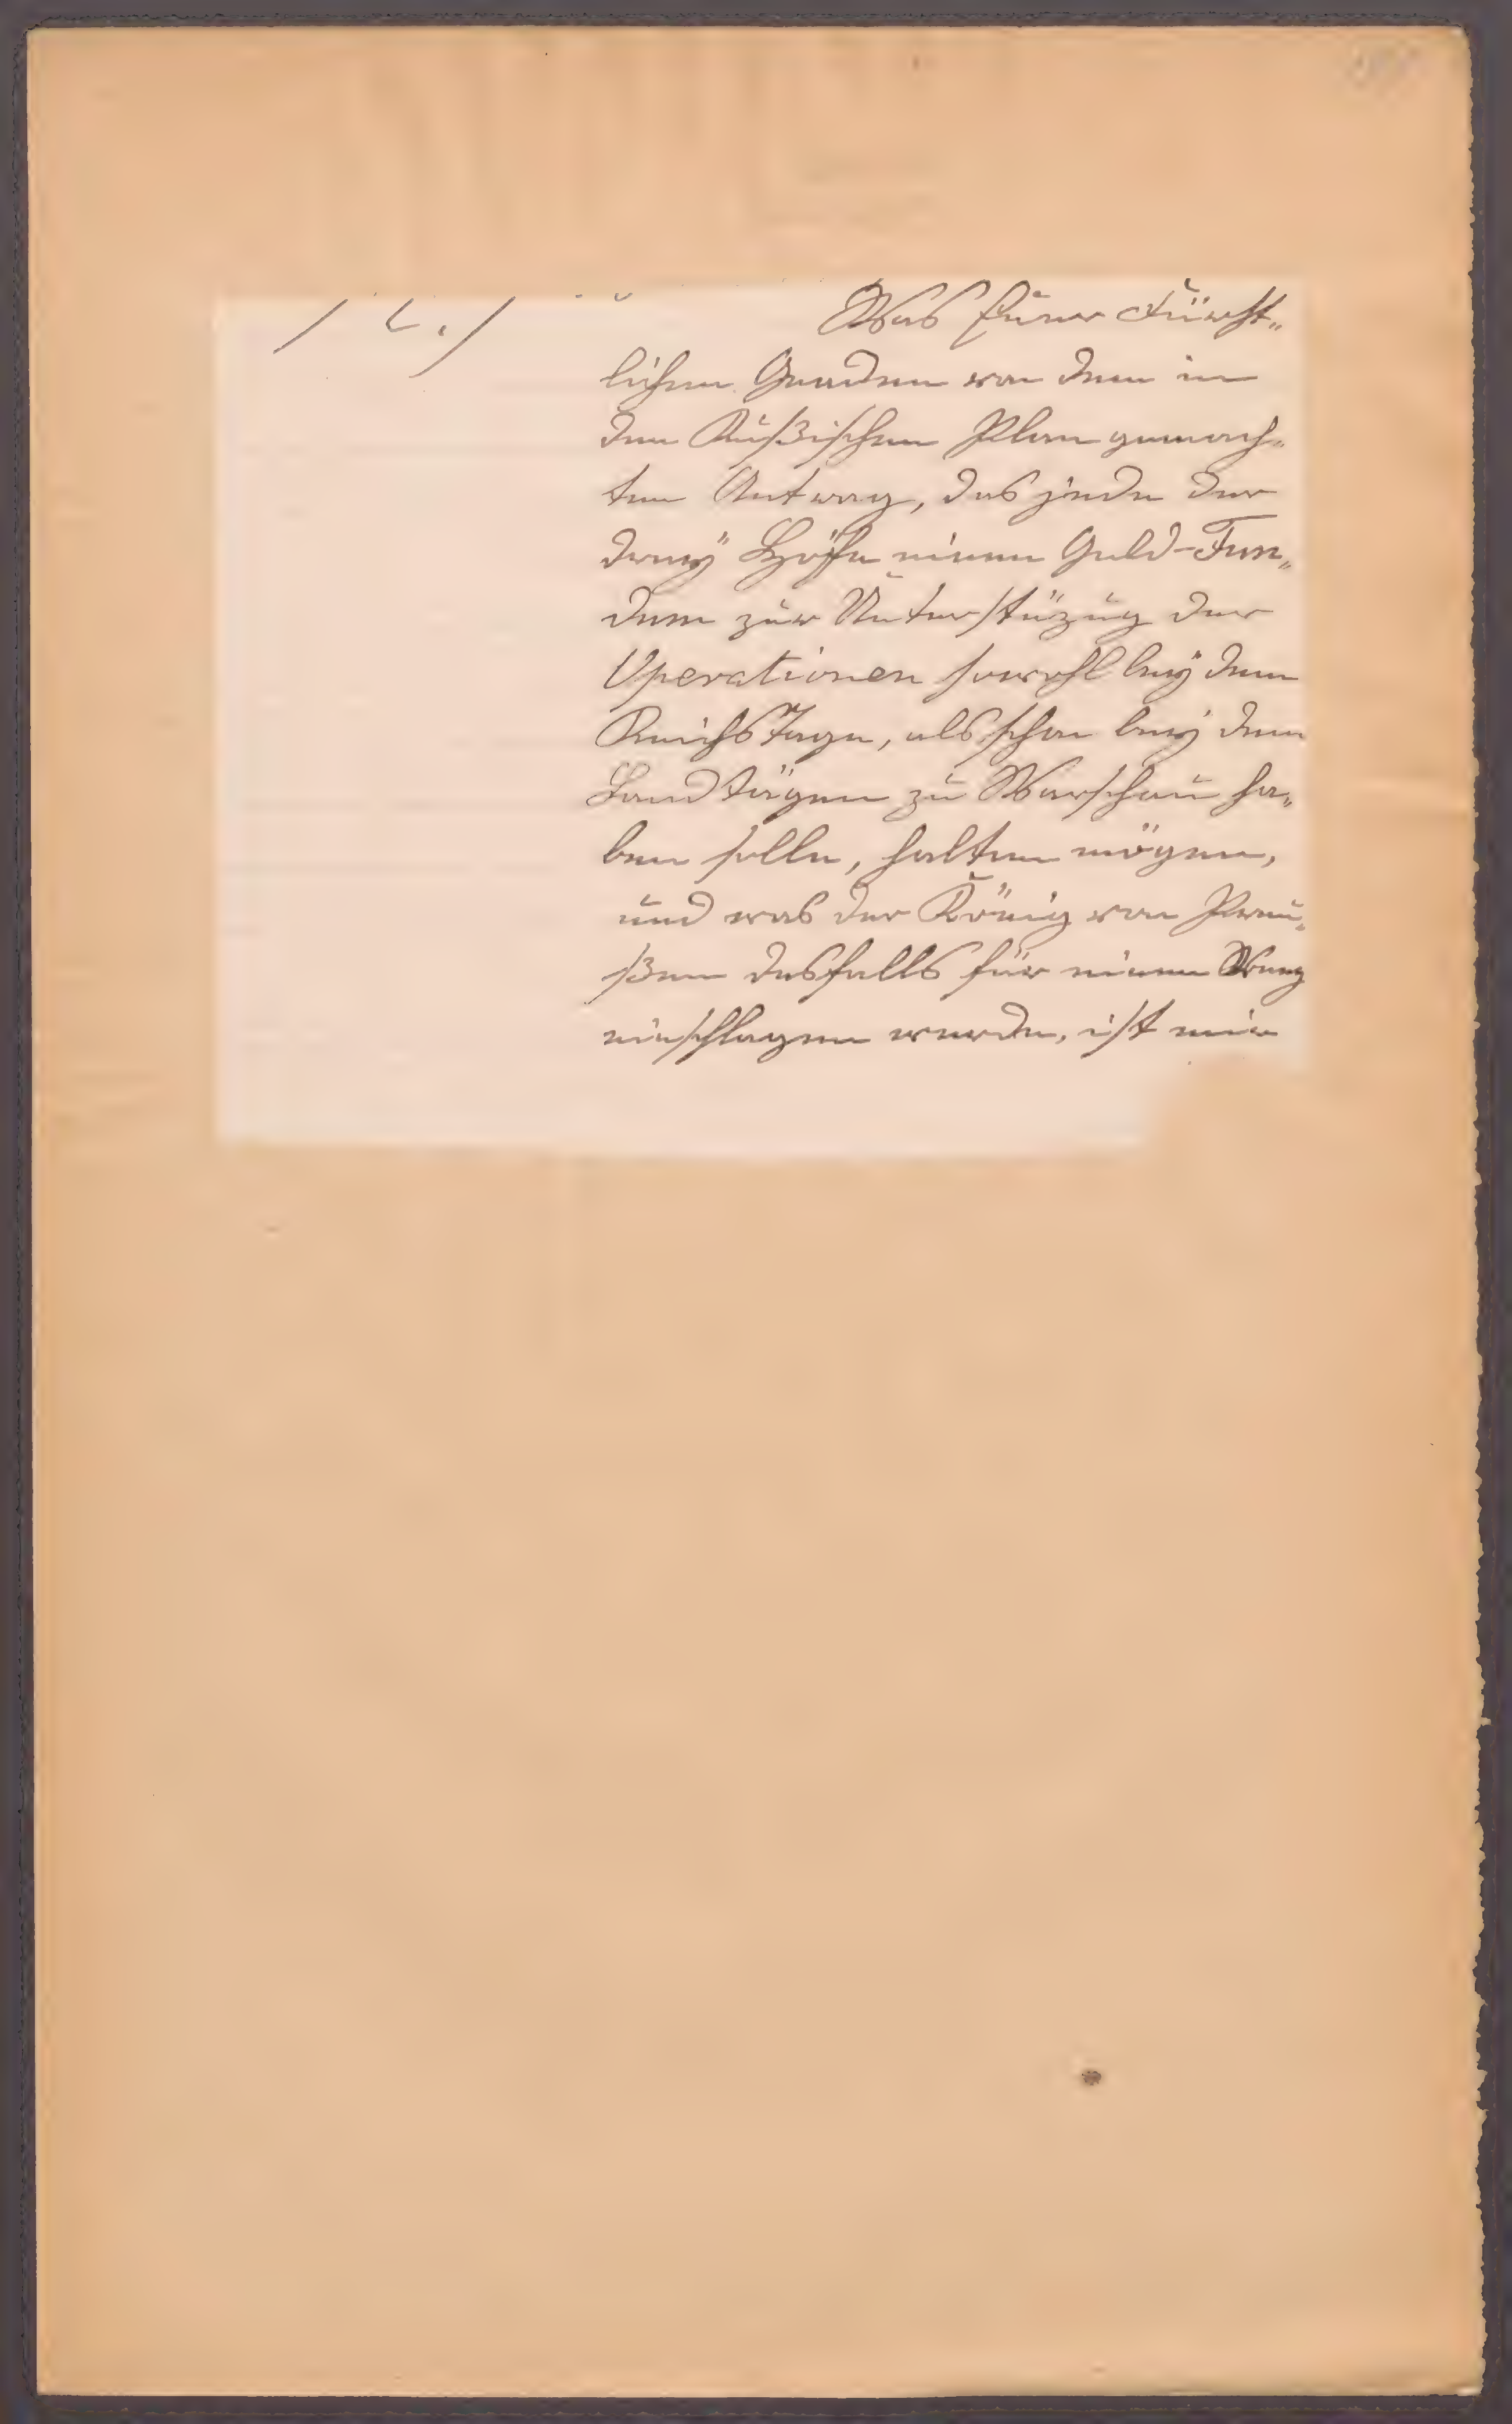 Was Euer Fürst„
lichen Gnaden von dem in
dem Rußischen Plan gemach„
ten Antrag, das jede der
dreÿ Höfe einen Geld-Fun„
dum zur Unterstüzug der
Operationen sowohl beÿ dem
Reichs Tage, als schon beÿ dem
Land tägen zu Warschau ha„
ben solle, halten mögen,
und was der König von Preu„
ßen desfalls für einen Weeg
einschlagen werde, ist mir